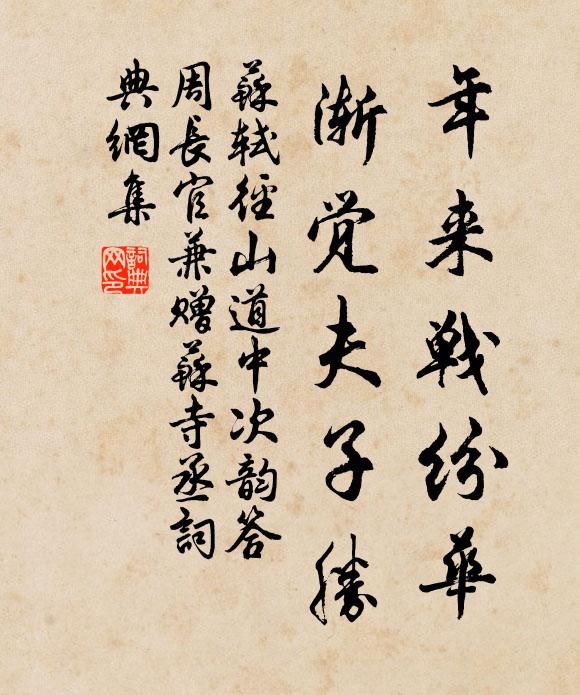 年来戦纷華
渐覚夫子勝
蘇軾徑山道中次韵答
周長官兼贈蘇寺丞詞
典網集
詞典
网印